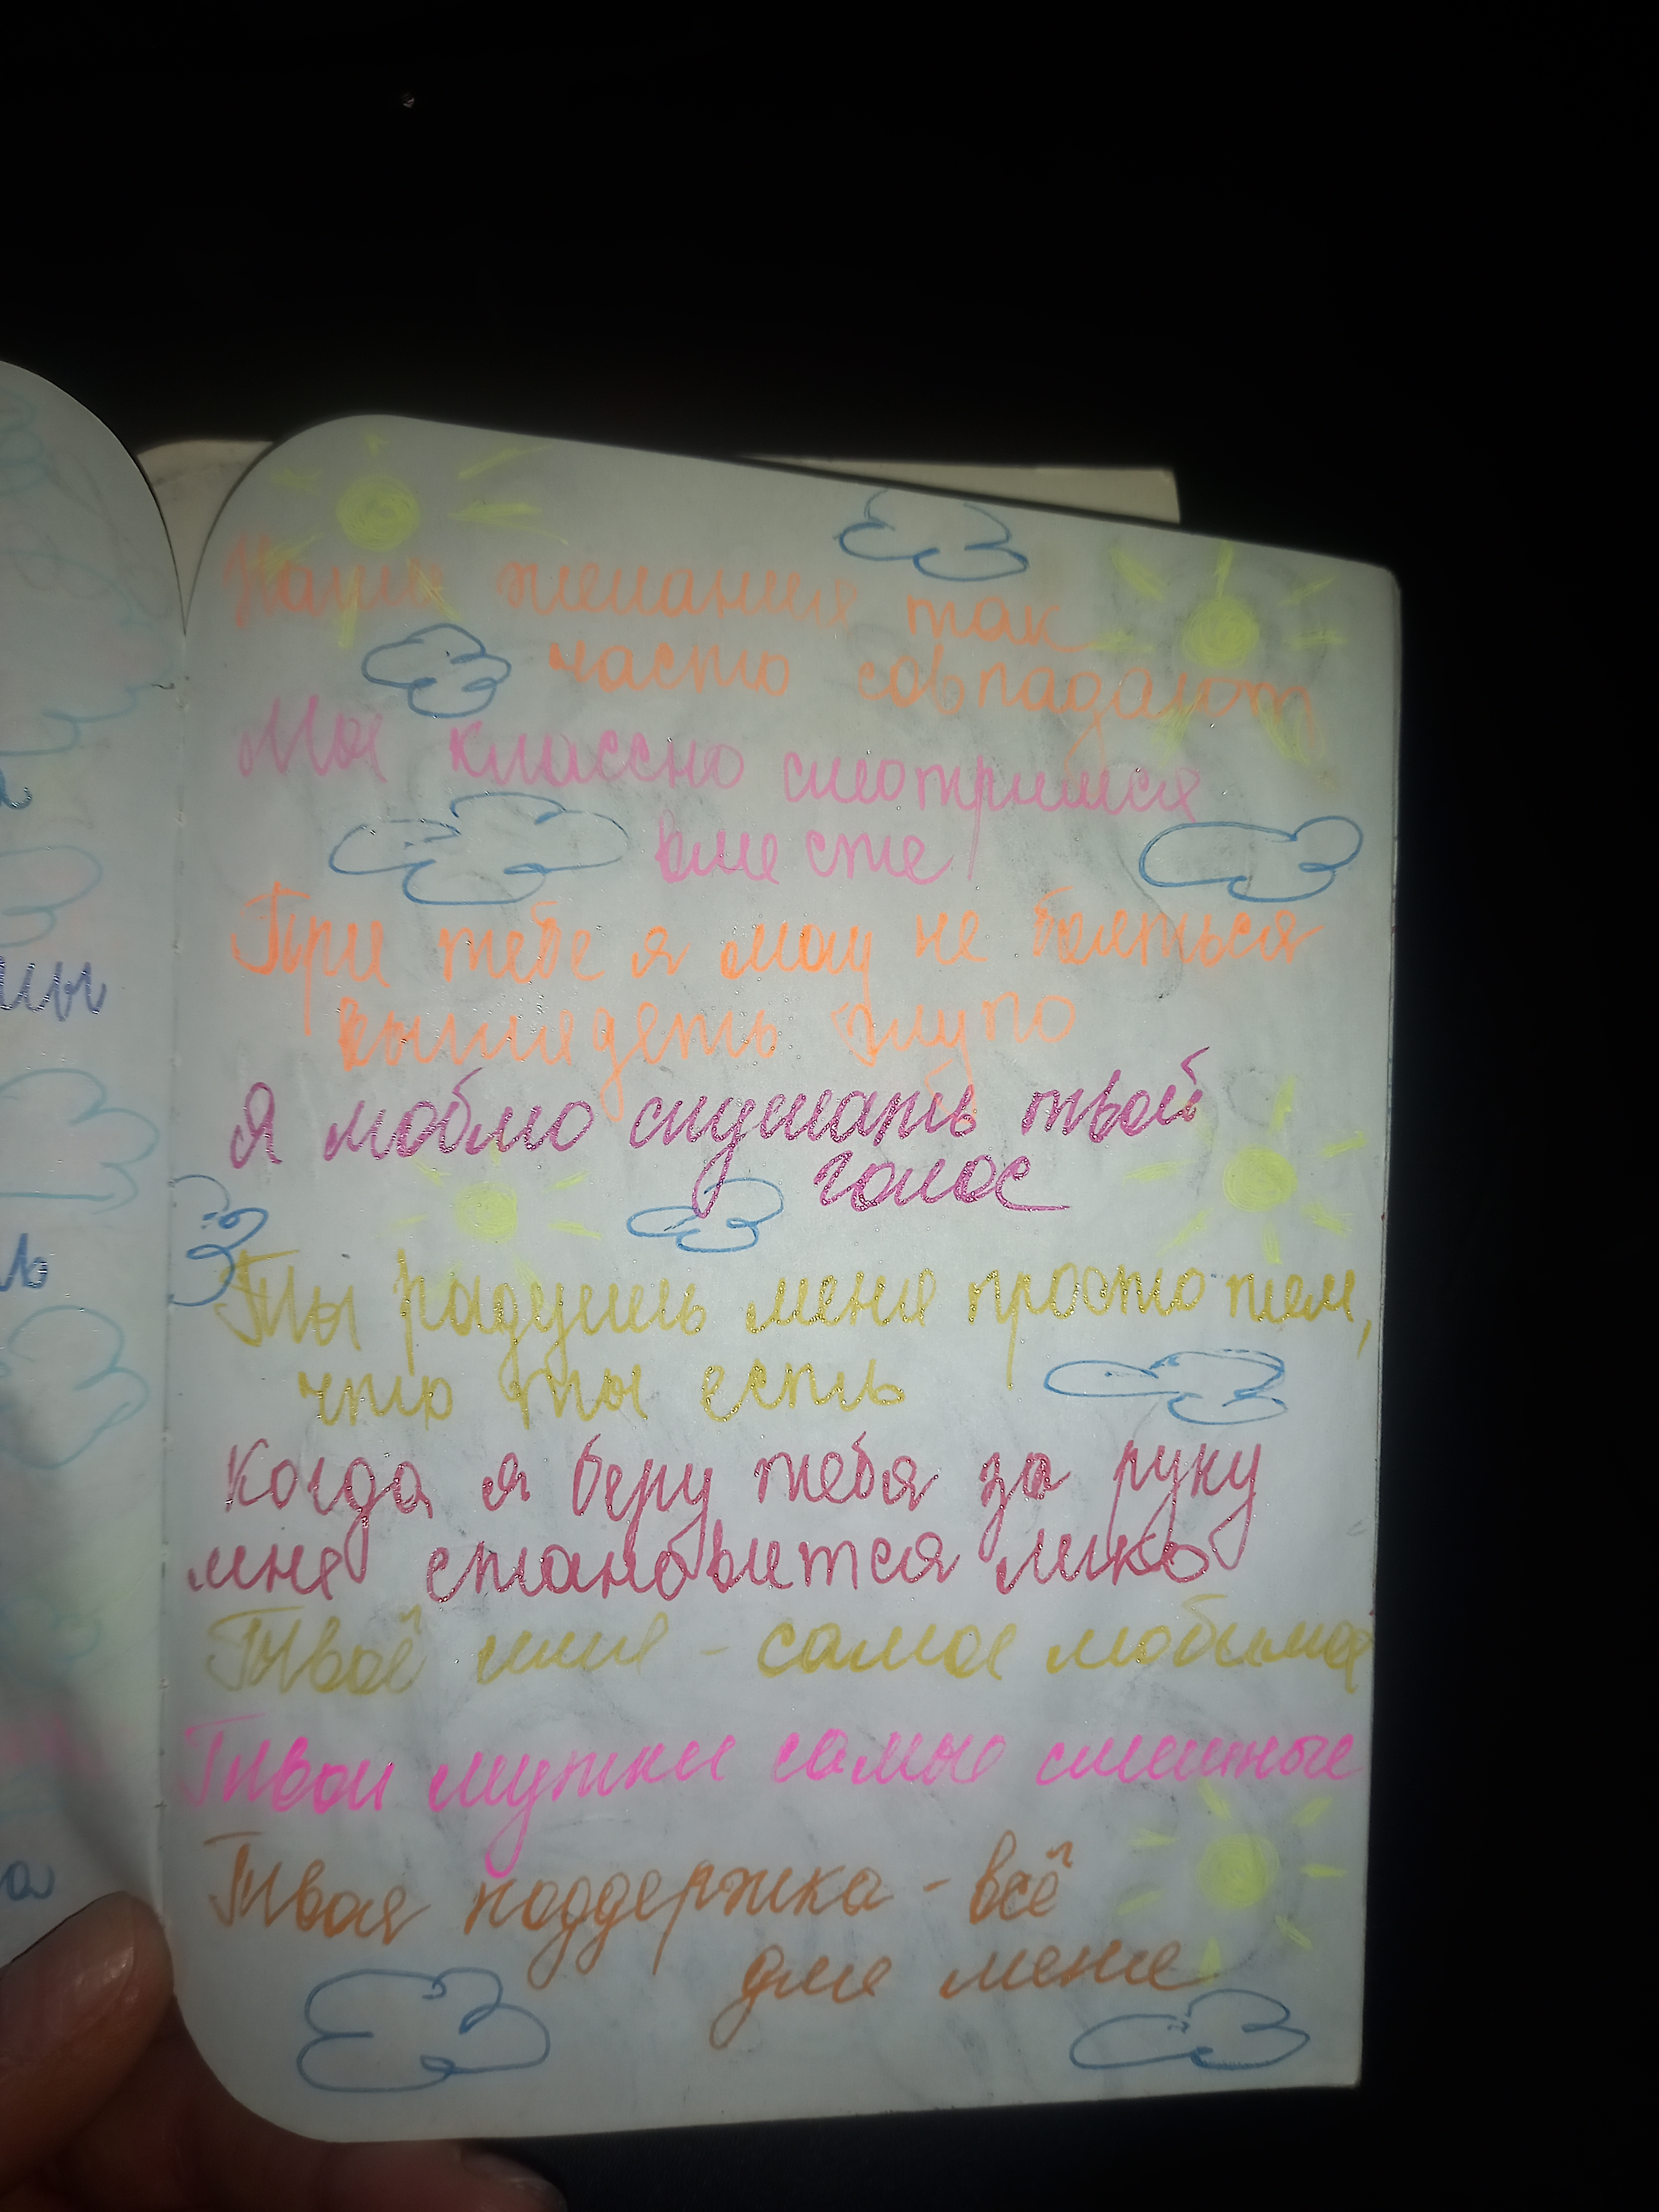 Наши желания так
часто совпадают
Мы классно смотримся
вместе
При тебе я могу не бояться
выглядеть глупо
Я люблю слушать твой
голос
Ты радуешь меня просто тем,
что ты есть
Когда я беру тебя за руку
мне становится легко
Твоё имя - самое любимое
Твои шутки самые смешные
Твоя поддержка - всё
для меня